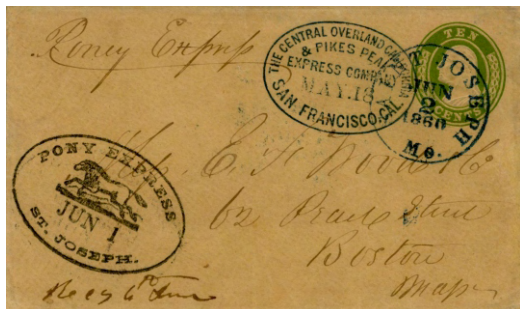 Poney Express
THE CENTRAL OVERLAND CALIFORNIA
& PIKES PEAK
EXPRESS COMPANY
MAY.18
SAN FRANCISCO.CAL.
TEN
CENTS
ST JOSEPH
JUN
2
1860
Mo.
PONY EXPRESS
JUN 1
ST. JOSEPH.
E.
62 Pearl Street
Boston
Mass
Rec'd 6th June